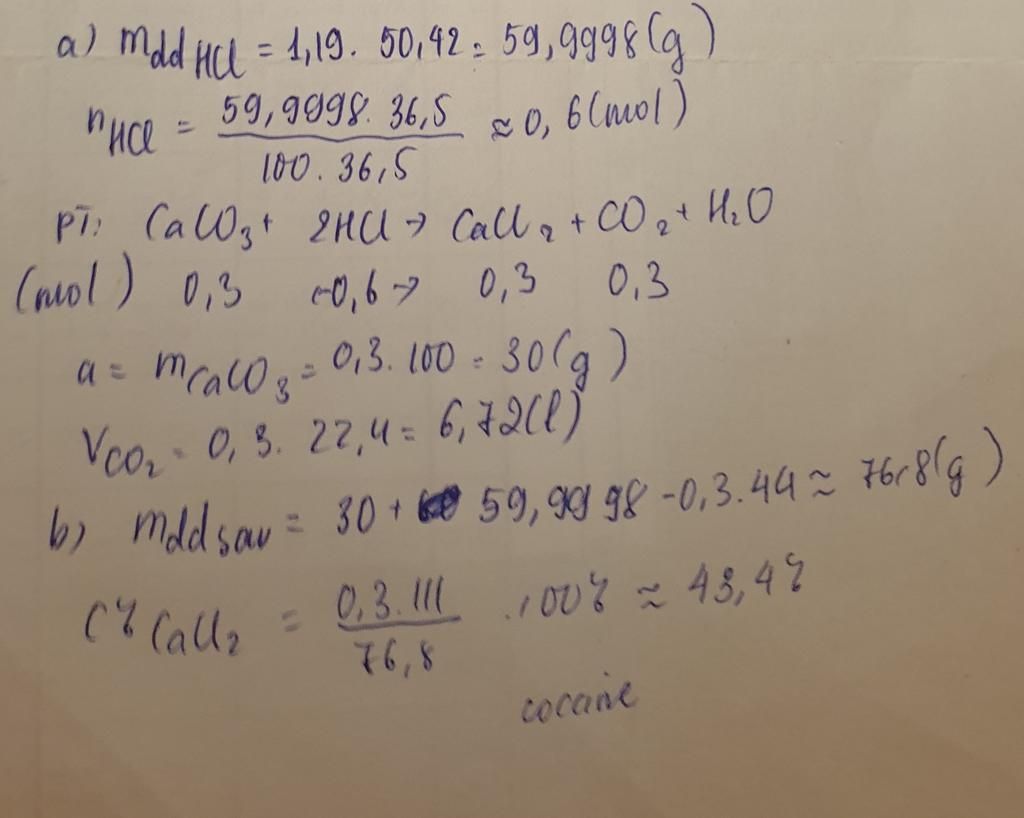 a) mddHCl = 1,19. 50,42 = 59,9998(g)
nHCl = 59,9998. 36,5 / 100. 36,5 ≈ 0,6(mol)
PT: CaCO3 + 2HCl → CaCl2 + CO2 + H2O
(mol) 0,3 ←0,6→ 0,3 0,3
a = mCaCO3 = 0,3. 100 = 30(g)
VCO2 = 0,3. 22,4 = 6,72(l)
b) mdd sau = 30 + 59,9998 - 0,3.44 ≈ 76,8(g)
C% CaCl2 = 0,3. 111 / 76,8 .100% ≈ 43,4%
cocaine